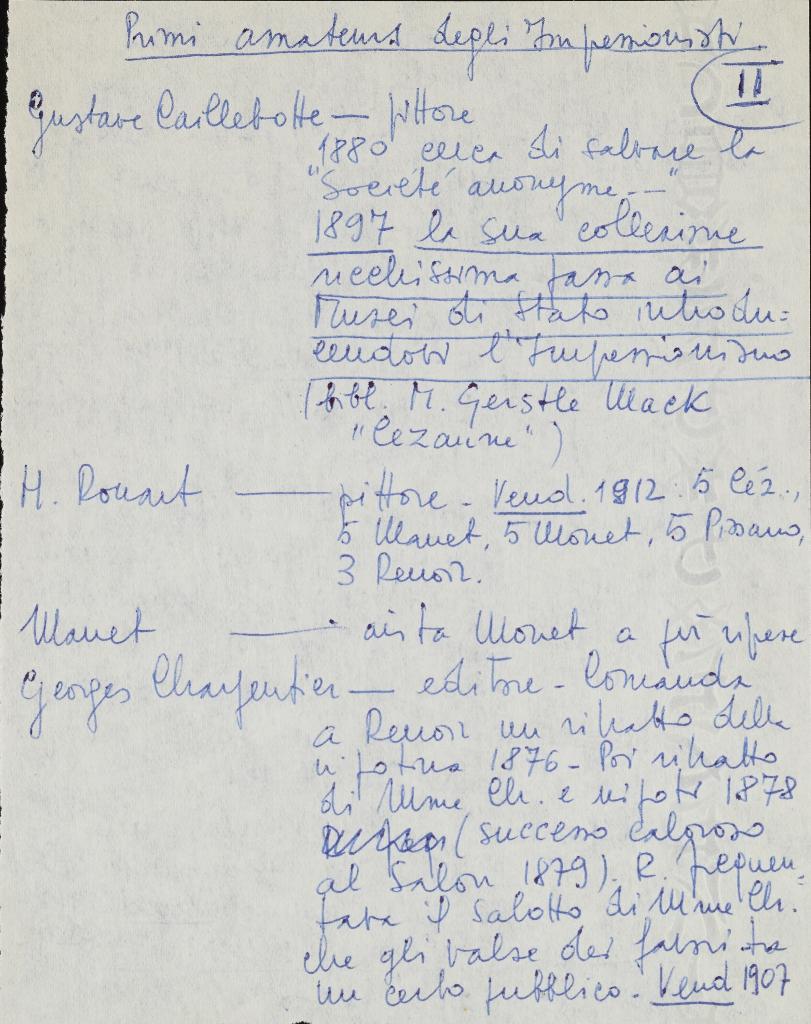 Primi amateurs degli Impressionisti
II
Gustave Caillebotte — pittore
1880 cerca di salvare la
"Société anonyme -—"
1897 la sua collezione
ricchissima passa ai
Musei di Stato introdu=
cendovi l'Impressionismo
(bibl. M. Gerstle Mack
"Cézanne")
H. Rouart — pittore - Vend. 1912. 5 Céz.,
5 Manet, 5 Monet, 5 Pissarro,
3 Renoir.
Manet — aiuta Monet a più riprese
Georges Charpentier — editore - Comanda
a Renoir un ritratto della
nipotina 1876 - Poi ritratto
di Mme Ch. e nipoti 1878
(successo caloroso
al Salon 1879). R. frequen=
tava il salotto di Mme Ch.
che gli valse dei favori tra
un certo pubblico. Vend 1907